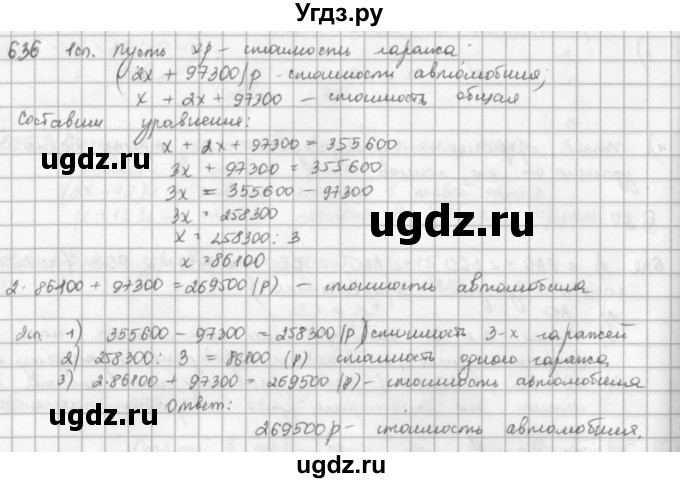 Угдз.ру
636 1сп. Пусть xр – стоимость гаража.
(2x + 97300)р – стоимость автомобиля;
x + 2x + 97300 – стоимость общая
Составим уравнение:
x + 2x + 97300 = 355600
3x + 97300 = 355600
ugdz.ru
3x = 355600 – 97300
ugdz.ru
3x = 258300
x = 258300 : 3
x = 86100
2 · 86100 + 97300 = 269500 (р) – стоимость автомобиля
ugdz.ru
2сп. 1) 355600 – 97300 = 258300 (р) стоимость 3-х гаражей
2) 258300 : 3 = 86100 (р) стоимость одного гаража
3) 2·86100 + 97300 = 269500 (р) – стоимость автомобиля
Ответ:
ugdz.ru
269500р – стоимость автомобиля.
ugdz.ru